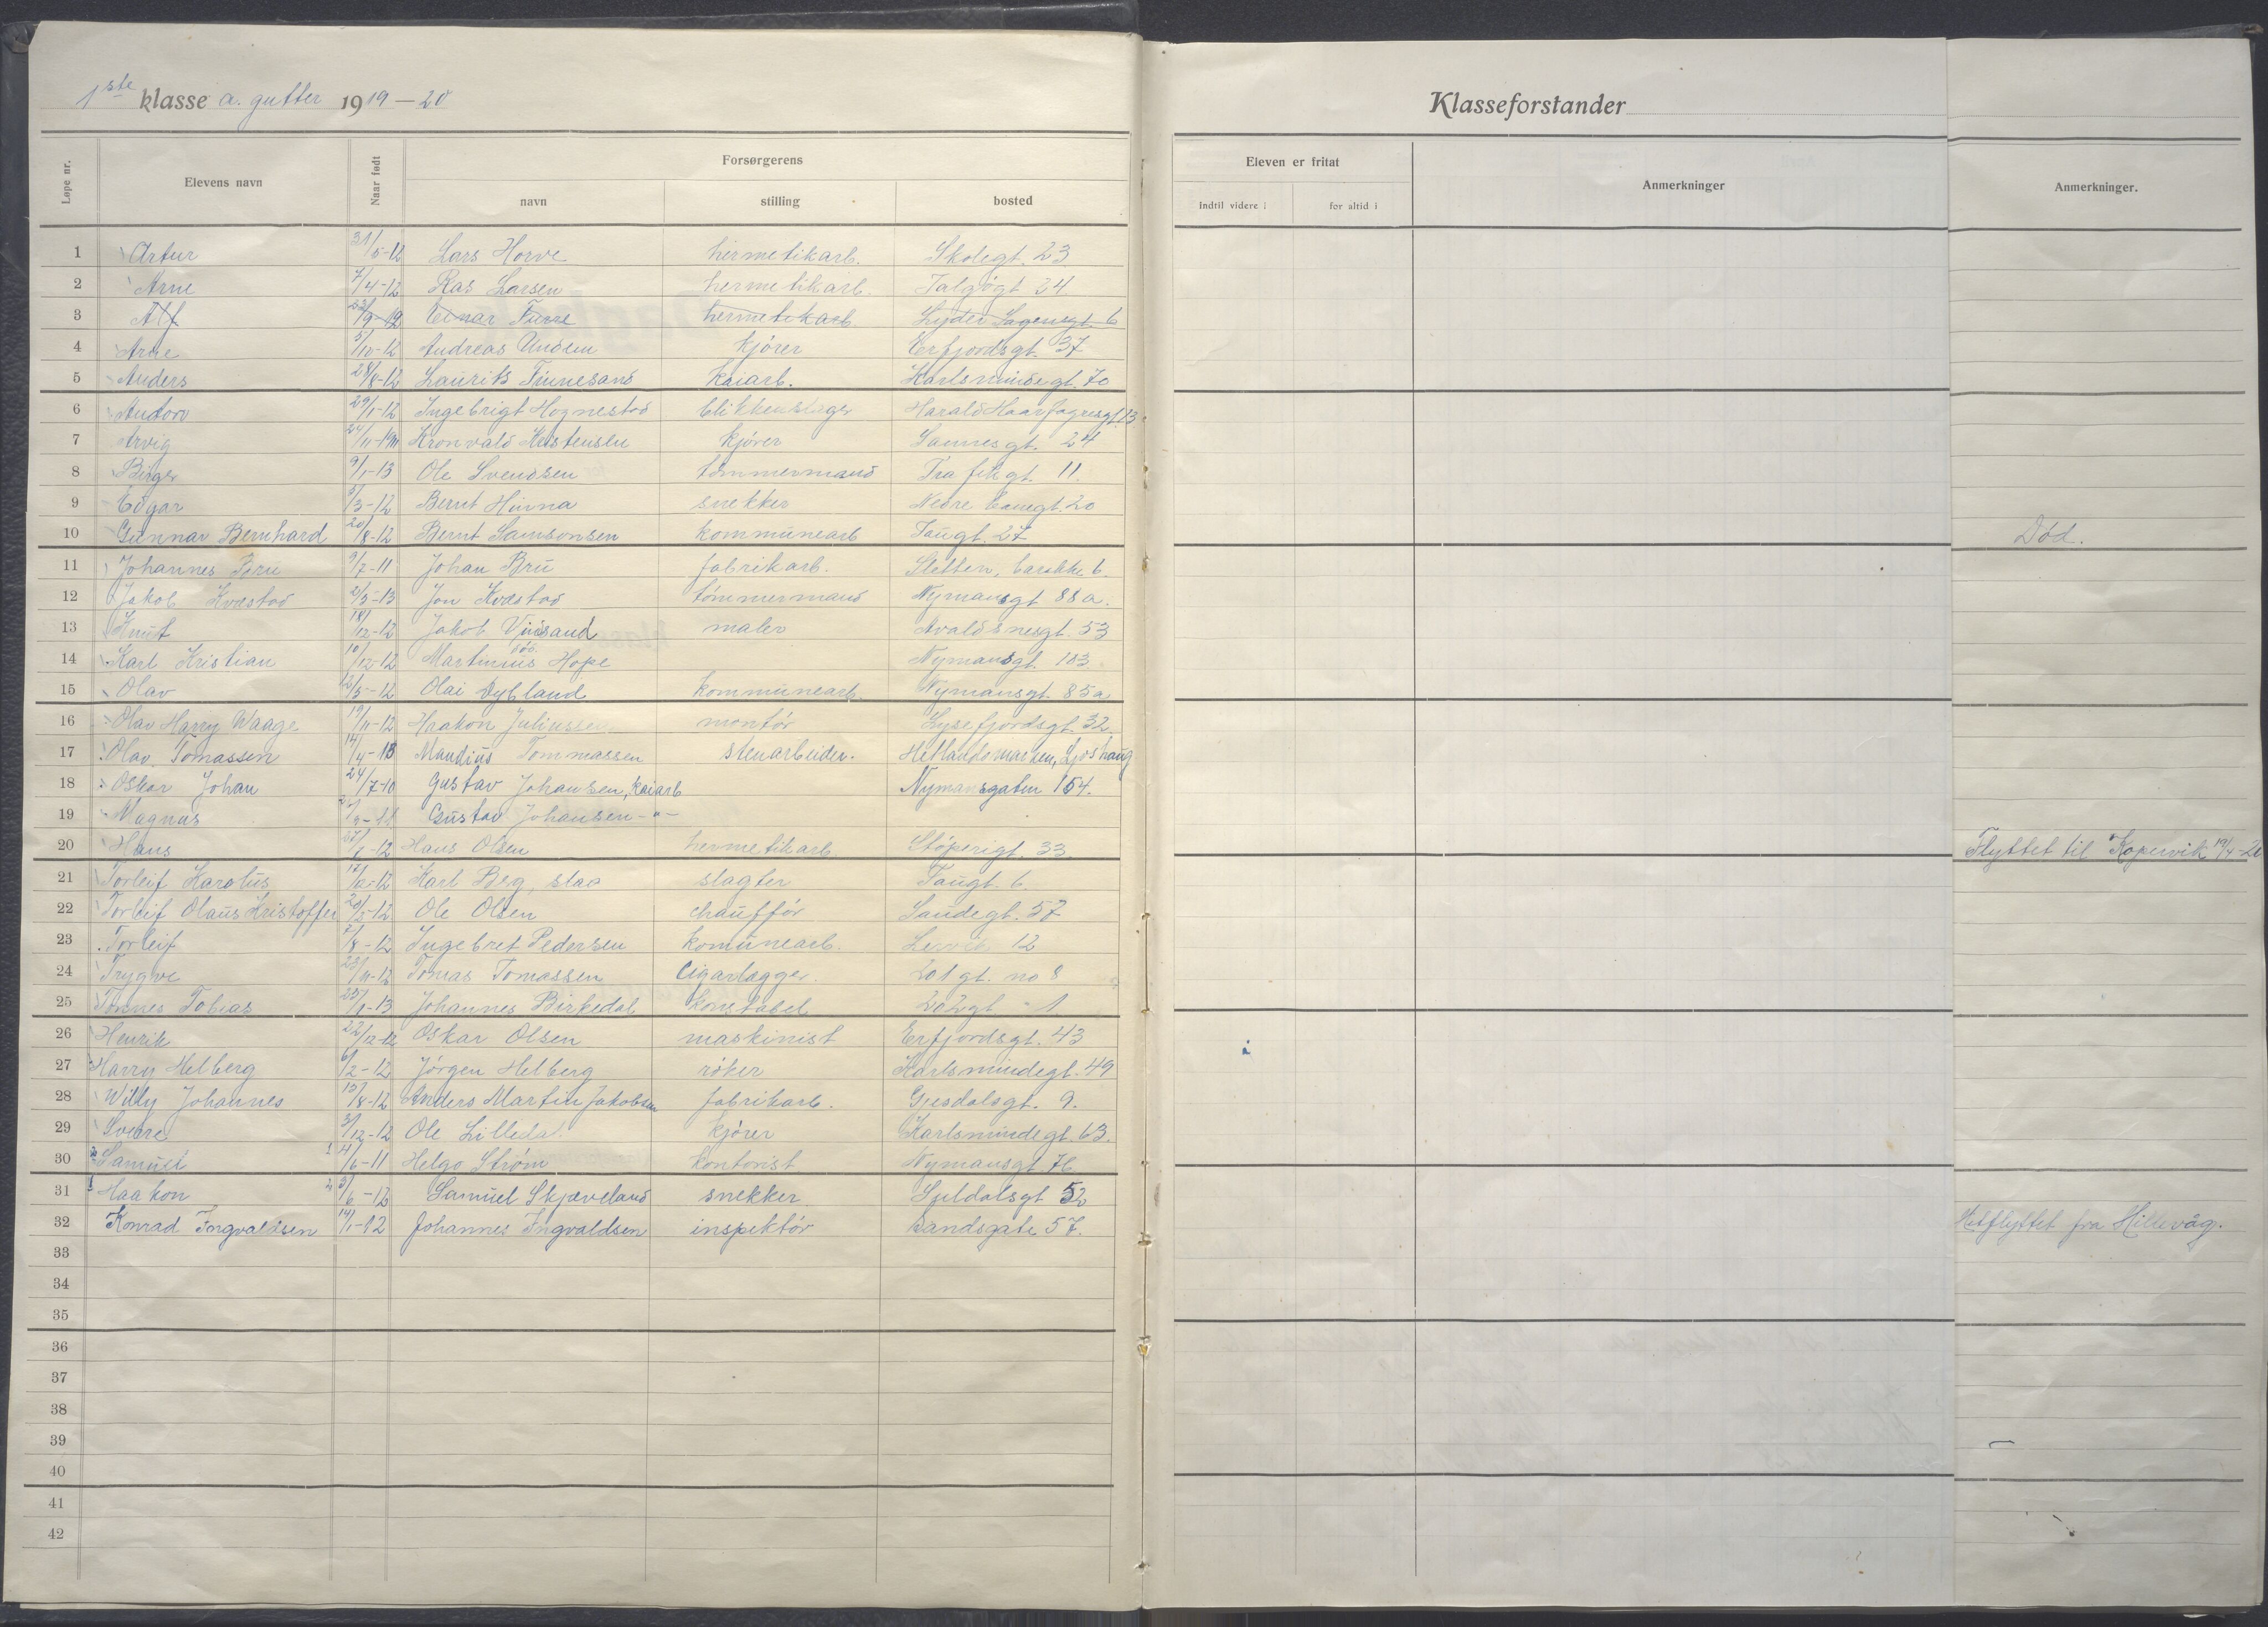 1ste klasse a. gutter 1919-20
Klasseforstander
Løpe nr. Elevens navn Naar født Forsørgerens navn stilling bosted
Eleven er fritat indtil videre i for altid i Anmerkninger Anmerkninger.
1 Artur 31/5-12 Lars Horve hermetikarb. Skolegt. 23
2 Arne 7/4-12 Ras Larsen hermetikarb. Talgøgt 24
3 Alf 23/9-12 Einar Furre hermetikarb Lyder Sagensgt. 6
4 Arne 5/10-12 Andreas Undem kjører Erfjordsgt. 37
5 Anders 28/8-12 Laurits Tinnesand Kaiarb. Karlsmindegt. 70
6 Andorv 29/1-12 Ingebrigt Hognestad blikkenslager Harald Haarfagresgt. 13
7 Arvig 24/11-1911 Kronvald Kristensen kjører Sannesgt. 24
8 Birger 9/1-13 Ole Svendsen tømmermand Trafikgt. 11.
9 Edgar 5/3-12 Bernt Hinna snekker Nedre banegt. 20
10 Gunnar Bernhard 20/8-12 Bernt Samsonsen kommunearb Taugt. 27 Død.
11 Johannes Bru 9/7-11 Johan Bru fabrikarb. Sletten, barakke 6.
12 Jakob Kvæstad 2/3-13 Jon Kvæstad tømmermand Nymansgt 88a.
13 Knut 18/12-12 Jakob maler Avaldsnesgt. 53
14 Karl Kristian 10/12-12 Martinius Hope Nymansgt. 103
15 Olav 12/5-12 Olai Dybland kommunearb. Nymansgt. 85a
16 Olav Harry Waage 19/11-12 Haakon Juliussen montør Lysefjordsgt. 32
17 Olav Tomassen 14/4-13 Mandius Tommassen stenarbeider. Hetlandsmarken, Ljoshaug
18 Oskar Johan 24/7-10 Gustav Johansen, kaiarb Nymansgaten 154.
19 Magnus Gustav Johansen -"-
20 Hans 27/6-12 Hans Olsen hermetikarb. Støperigt. 33 Flyttet til Kopervik 19/4-20
21 Torleif Karolus 12/12-12 Karl Berg, slag slagter Taugt. 6
22 Torleif Olaus Kristoffer 20/5-12 Ole Olsen chauffør Saudegt. 57
23 Torleif 2/8-12 Ingebret Pedersen komunearb. Lervik 12
24 Trygve 23/11-12 Tomas Tomassen Cigarlægger. 201 gt. no 8
25 Tønnes Tobias 25/1-13 Johannes Birkedal konstabel 202gt " 1
26 Henrik 22/12-12 Oskar Olsen maskinist Erfjordsgt. 43
27 Harry Helberg 6/2-12 Jørgen Helberg røker Karlsmindegt. 49
28 Willy Johannes 13/8-12 Anders Martin Jakobsen fabrikarb. Gjesdalsgt. 9.
29 Sverre 3/12-12 Ole Lilledal kjører Karlsmindegt. 63.
30 Samuel 4/6-11 Helge Strøm kontorist Nymansgt 76
31 Haakon 3/6-12 Samuel Skjæveland snekker Suldalsgt 52
32 Konrad Ingvaldsen 14/1-12 Johannes Ingvaldsen inspektør Sandsgate 57. Hitflyttet fra Hillevåg.
33
34
35
36
37
38
39
40
41
42